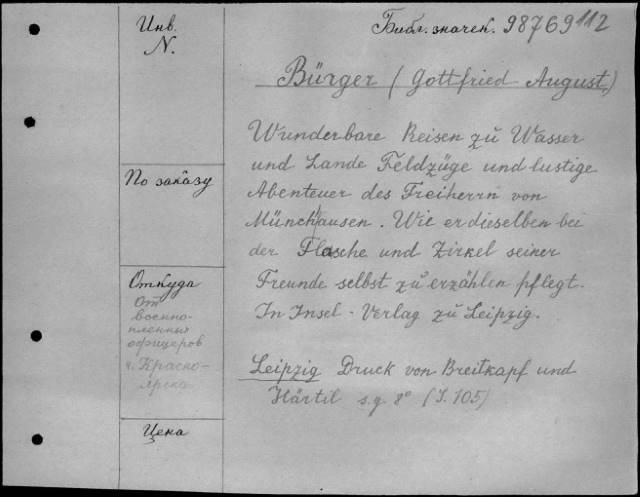 Инв.
N.
Библ. значек. 98769 112
Bürger (Gottfried August)
Wunderbare Reisen zu Wasser
und Lande Feldzüge und lustige
Abenteuer des Freiherrn von
Münchhausen. Wie er dieselben bei
der Flasche und Zirkel seiner
Freunde selbst zu erzählen pflegt.
In Insel-Verlag zu Leipzig.
Leipzig Druck von Breitkapf und
Härtil s.g 8° (S. 105)
По заказу
Откуда
От
военно-
пленных
офицеров
г. Красно-
ярска
Цена